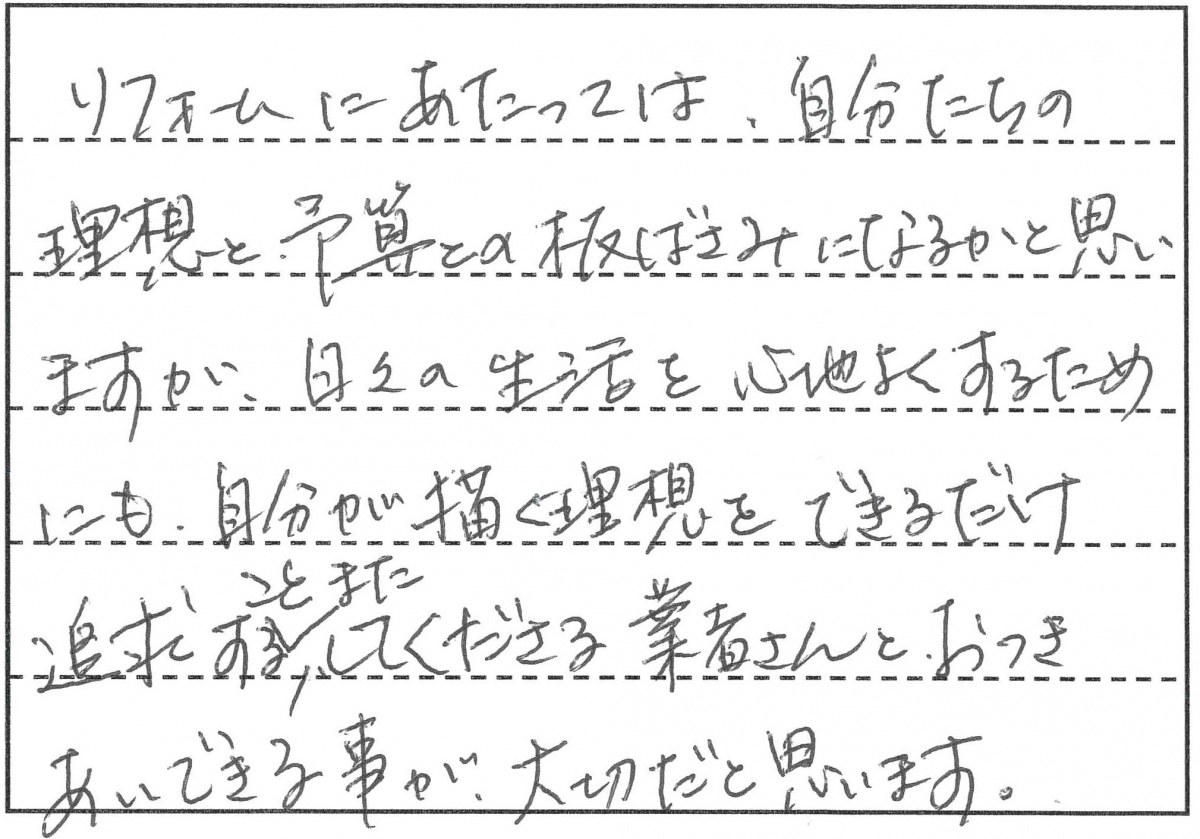 リフォームにあたっては、自分たちの
理想と、予算との板ばさみになるかと思い
ますが、日々の生活を心地よくするため
にも、自分が描く理想をできるだけ
ことまた
追求する、してくださる業者さんと、おつき
あいできる事が、大切だと思います。